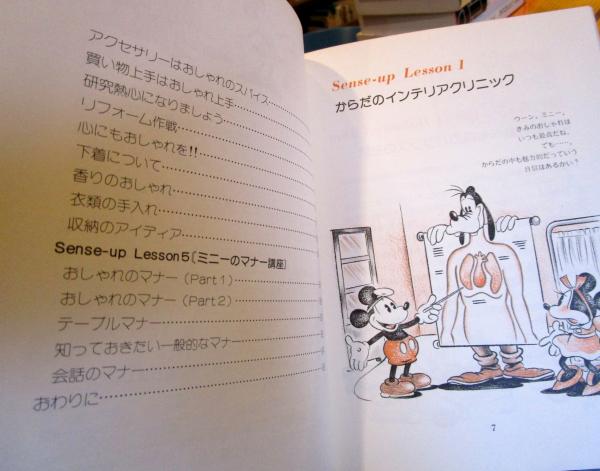 アクセサリーはおしゃれのスパイス
買い物上手はおしゃれ上手
研究熱心になりましょう
リフォーム作戦
心にもおしゃれを!!
下着について
香りのおしゃれ
衣類の手入れ
収納のアイディア
Sense-up Lesson5〔ミニーのマナー講座〕
おしゃれのマナー(Part1)
おしゃれのマナー(Part2)
テーブルマナー
知っておきたい一般的なマナー
会話のマナー
おわりに
Sense-up Lesson 1
からだのインテリアクリニック
ウーン、ミニー。
きみのおしゃれは
いつも最点だね。
でも……。
からだの中も魅力的だっていう
自信はあるかい?
7